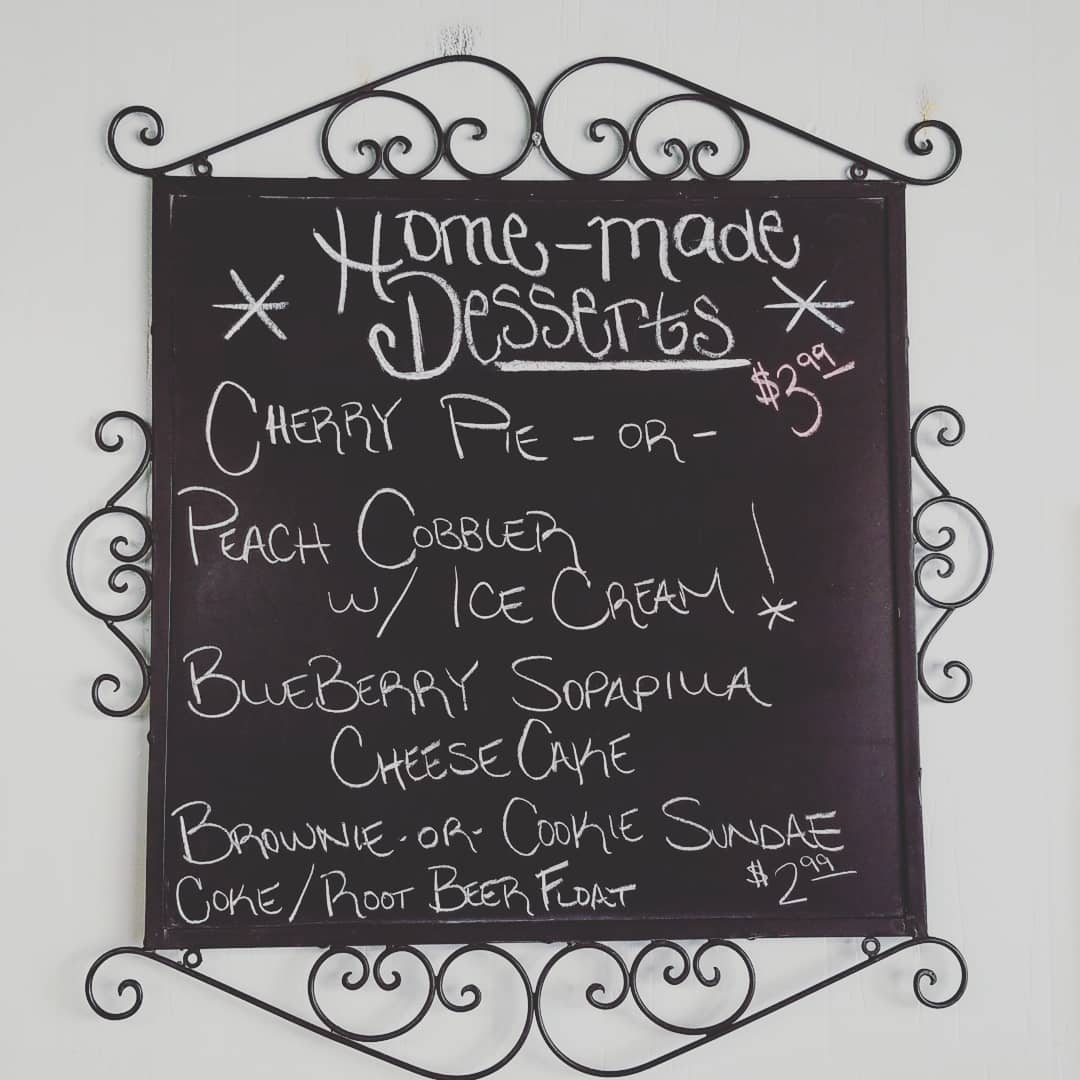 Home-made
* Desserts *
$3.99
CHERRY PIE - OR -
PEACH COBBLER
W/ ICE CREAM!
BLUEBERRY SOPAPILLA
CHEESE CAKE
BROWNIE-OR-COOKIE SUNDAE
COKE/ROOT BEER FLOAT $2.99